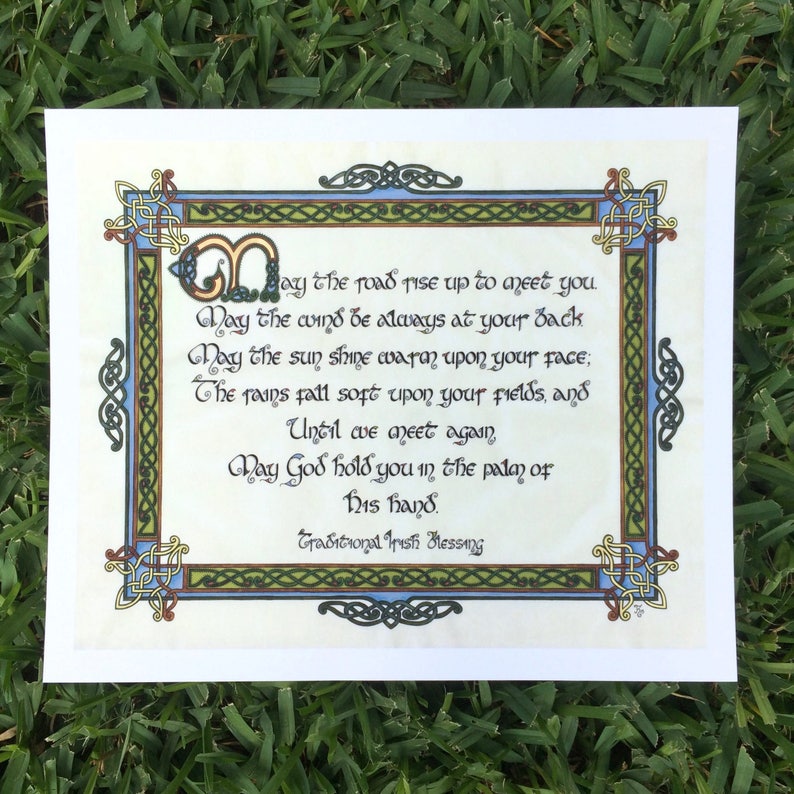 May the road rise up to meet you.
May the wind be always at your back.
May the sun shine warm upon your face;
The rains fall soft upon your fields, and
Until we meet again,
May God hold you in the palm of
His hand.
Traditional Irish Blessing